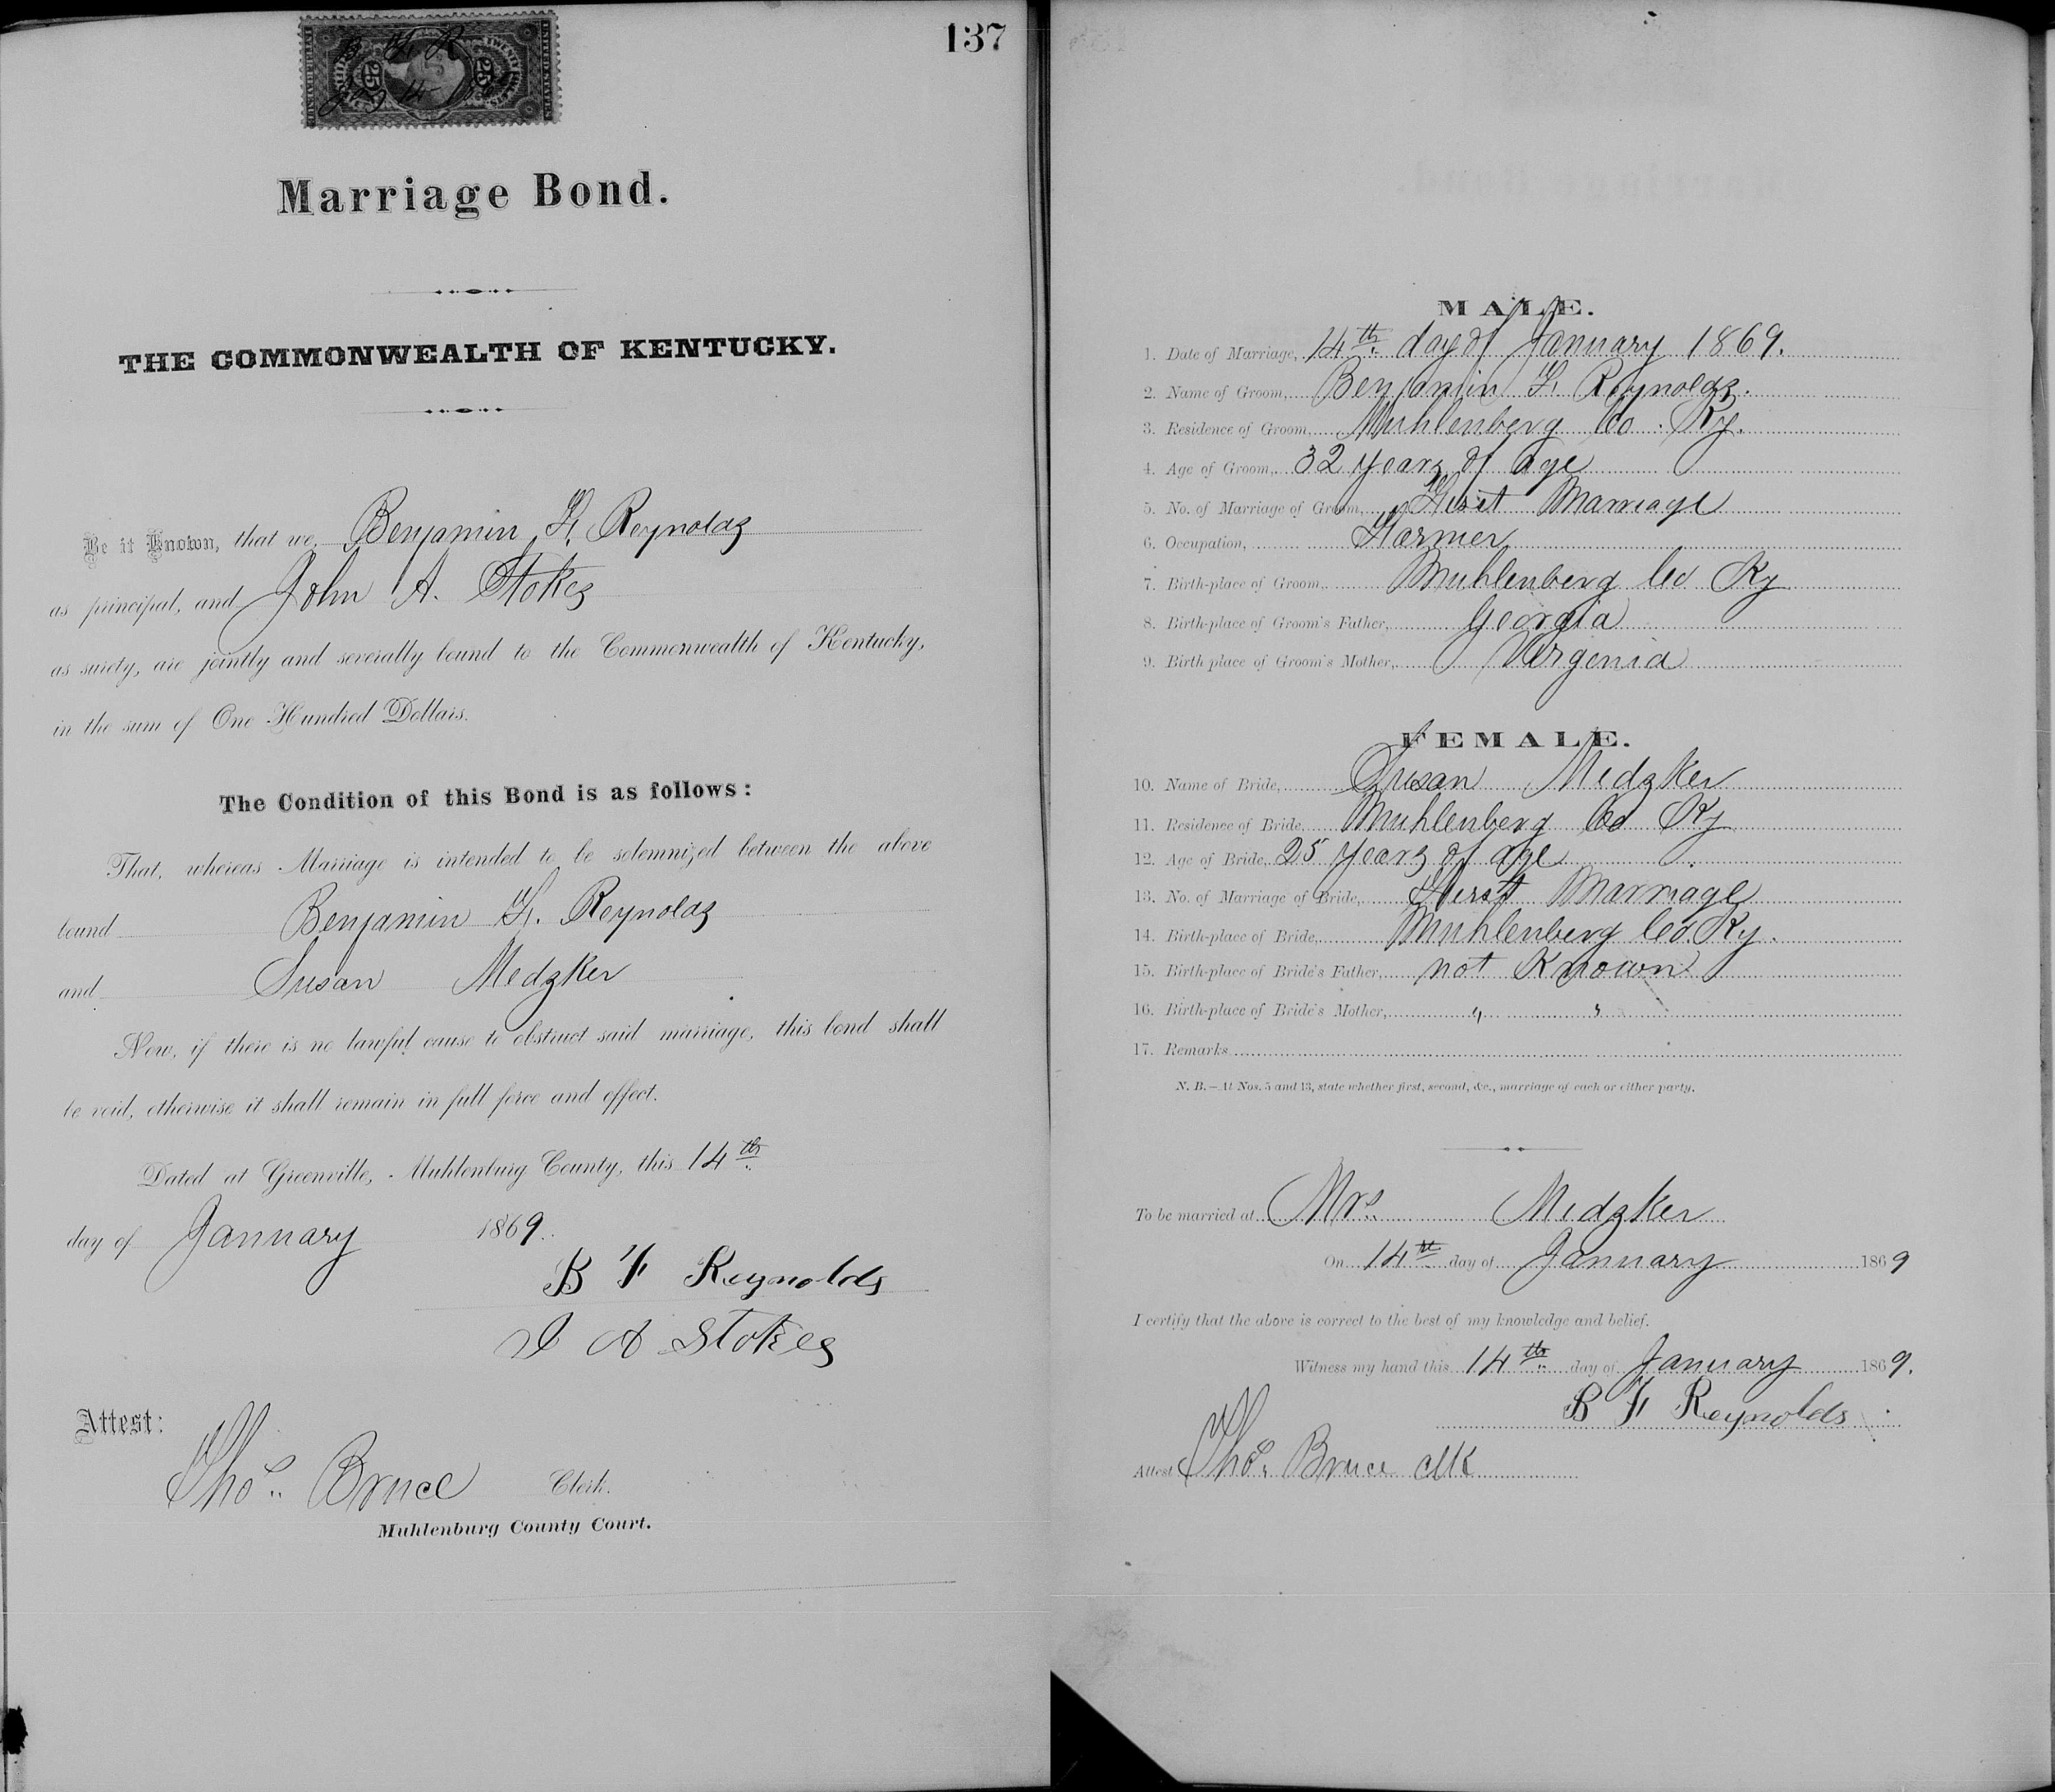 137
25 25
Marriage Bond.
THE COMMONWEALTH OF KENTUCKY.
Be it Known, that we, Benjamin F. Reynolds
as principal, and John A. Stokes
as surety, are jointly and severally bound to the Commonwealth of Kentucky,
in the sum of One Hundred Dollars.
The Condition of this Bond is as follows:
That, whereas Marriage is intended to be solemnized between the above
bound Benjamin F. Reynolds
and Susan Medzker
Now, if there is no lawful cause to obstruct said marriage, this bond shall
be void, otherwise it shall remain in full force and effect.
Dated at Greenville, Muhlenburg County, this 14th
day of January 1869.
B F Reynolds
J A Stokes
Attest:
Thos. Bruce Clerk.
Muhlenburg County Court.
MALE.
1. Date of Marriage, 14th day of January 1869.
2. Name of Groom, Benjamin F. Reynolds.
3. Residence of Groom, Muhlenberg Co. Ky.
4. Age of Groom, 32 years of age
5. No. of Marriage of Groom, First Marriage
6. Occupation, Farmer
7. Birth-place of Groom, Muhlenberg Co Ky
8. Birth-place of Groom's Father, Georgia
9. Birth-place of Groom's Mother, Virginia
FEMALE.
10. Name of Bride, Susan Medzker
11. Residence of Bride, Muhlenberg Co Ky
12. Age of Bride, 25 years of age
13. No. of Marriage of Bride, First Marriage
14. Birth-place of Bride, Muhlenberg Co. Ky.
15. Birth-place of Bride's Father, not Known
16. Birth-place of Bride's Mother, " "
17. Remarks
N. B.—At Nos. 5 and 13, state whether first, second, &c., marriage of each or either party.
To be married at Mrs. Medzker
On 14th day of January 1869
I certify that the above is correct to the best of my knowledge and belief.
Witness my hand this 14th day of January 1869.
B F Reynolds
Attest Thos. Bruce Clk